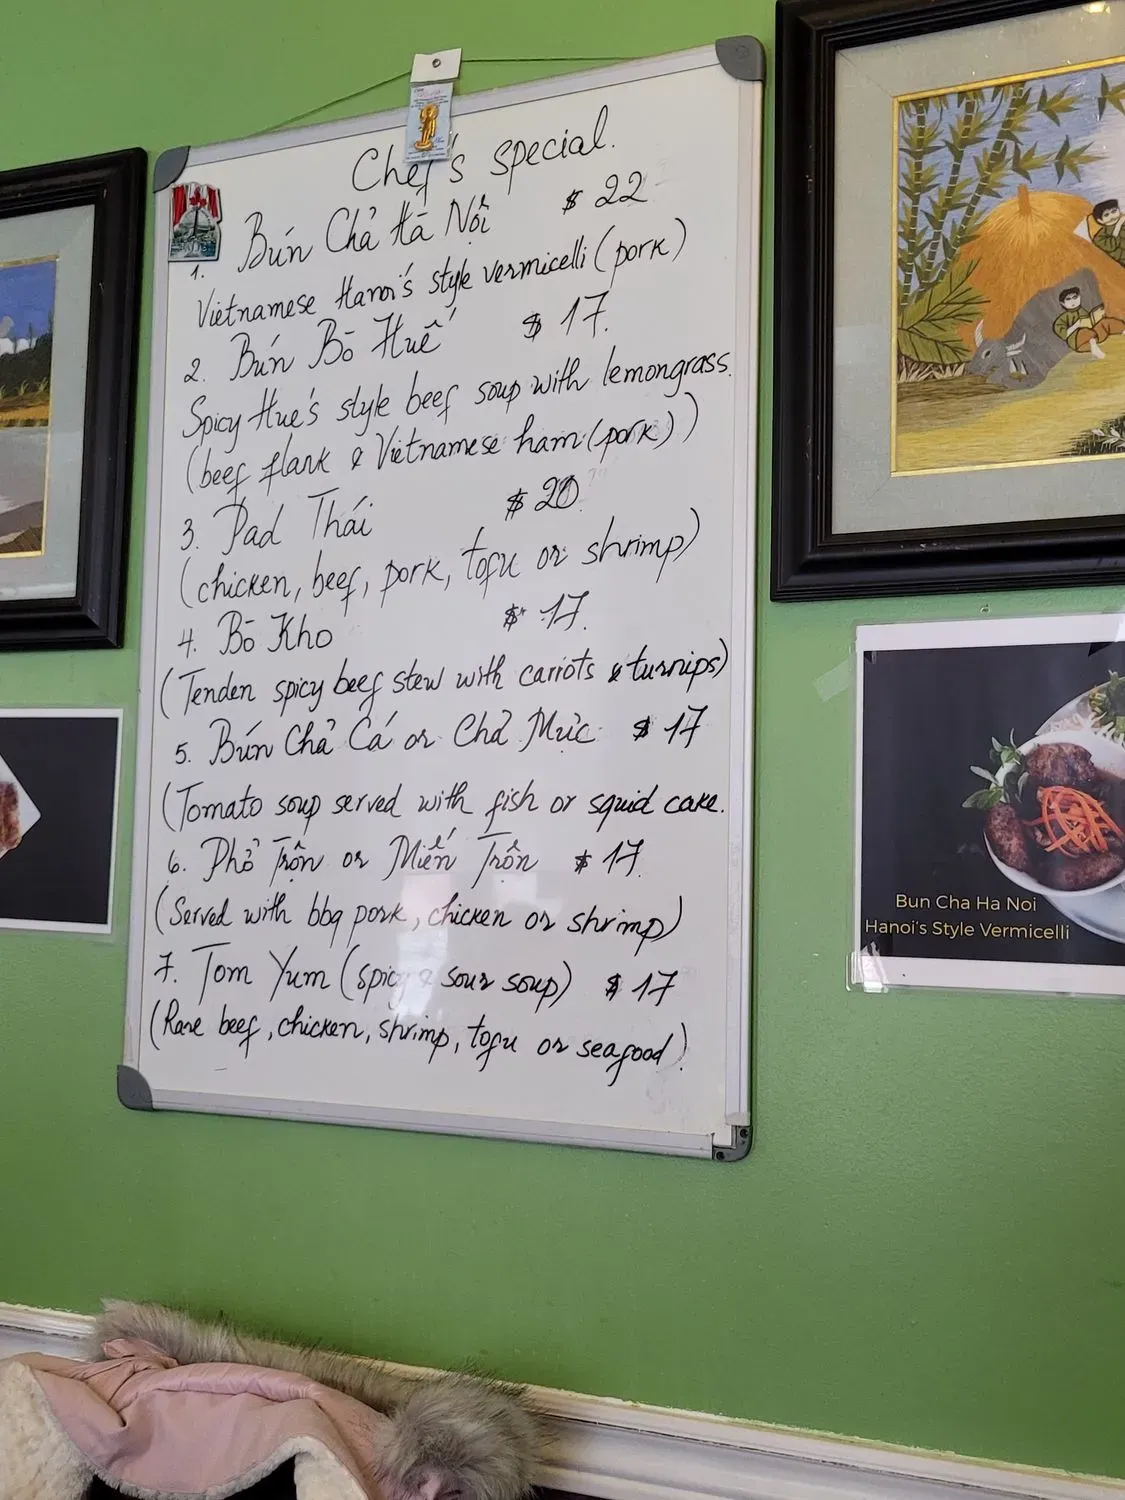 Chef's special.
1. Bún Chả Hà Nội $ 22
Vietnamese Hanoi's style vermicelli (pork)
2. Bún Bò Huế $ 17.
Spicy Hue's style beef soup with lemongrass.
(beef flank & Vietnamese ham (pork))
3. Pad Thái $ 20.
(chicken, beef, pork, tofu or shrimp)
4. Bò Kho $ 17.
(Tenden spicy beef stew with carrots & turnips)
5. Bún Chả Cá or Chả Mực $ 17
(Tomato soup served with fish or squid cake.
6. Phở Trộn or Miến Trộn $ 17.
(Served with bbq pork, chicken or shrimp)
7. Tom Yum (spicy & sour soup) $ 17
(Rare beef, chicken, shrimp, tofu or seafood)
Bun Cha Ha Noi
Hanoi's Style Vermicelli